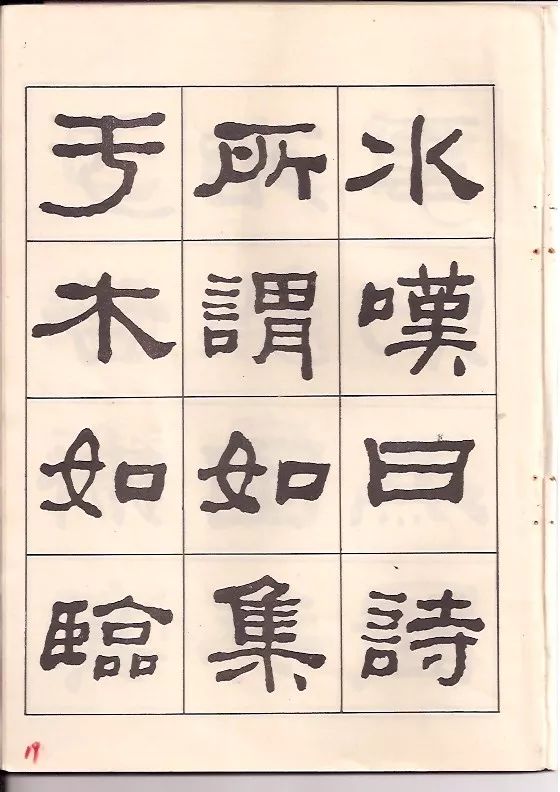 水嘆曰詩
所謂如集
于木如臨
19